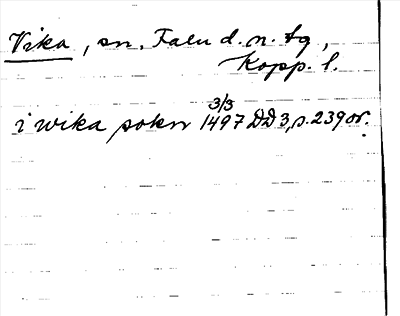 Vika, sn, Falu d. n. tg,
Kopp. l.
3/3
i wika sokn 1497 DD 3, s. 239 or.